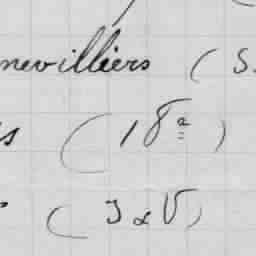 nevilliers ( S.
s ( 18ª )
( I & V)